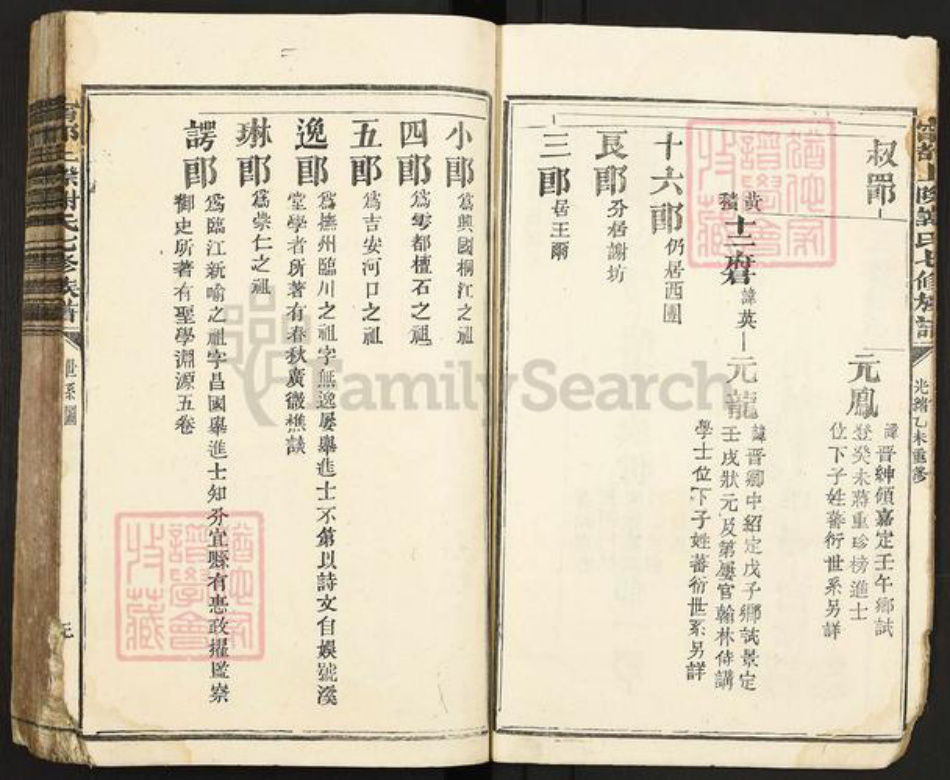 叔郎
元鳳
諱晋紳領嘉定壬午鄉試
登癸未蔣重珍榜進士
位下子姓蕃衍世系另詳
光緒乙未重修
十二府君
諱英
元龍
諱晋卿中紹定戊子鄉試景定
壬戌狀元及第屢官翰林侍講
學士位下子姓蕃衍世系另詳
十六郎 仍居西團
良郎 分居謝坊
三郎 居王爾
小郎 爲興國桐江之祖
四郎 爲雩都檀石之祖
五郎 爲吉安河口之祖
逸郎
爲撫州臨川之祖字無逸屢舉進士不第以詩文自娛號溪
堂學者所著有春秋廣微樵談
琳郎 爲崇仁之祖
諤郎
爲臨江新喻之祖字昌國舉進士知分宜縣有惠政擢監察
御史所著有聖學淵源五卷
世系圖
FamilySearch